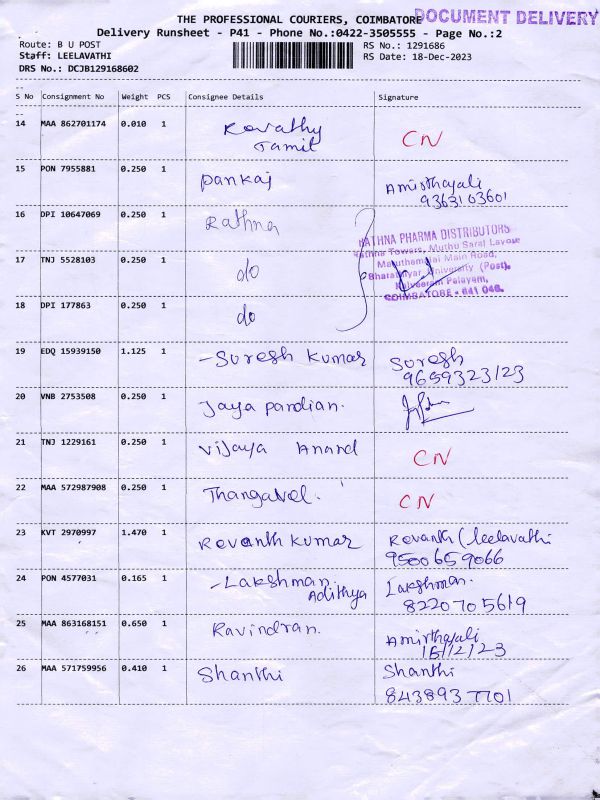 THE PROFESSIONAL COURIERS, COIMBATORE
DOCUMENT DELIVERY
Delivery Runsheet - P41 - Phone No.:0422-3505555 - Page No.:2
Route: B U POST
RS No.: 1291686
Staff: LEELAVATHI
RS Date: 18-Dec-2023
DRS No.: DCJB129168602
S No Consignment No Weight PCS Consignee Details Signature
14 MAA 862701174 0.010 1 Revathy CN
Tamil
15 PON 7955881 0.250 1 Pankaj Amirthayali
9363103601
16 DPI 10647069 0.250 1 Rathna
RATHNA PHARMA DISTRIBUTORS
Rathna Towers, Muthu Saraf Layout
17 TNJ 5528103 0.250 1 do
Maruthamalai Main Road,
Bharathiyar University (Post),
Kalveeram Palayam,
COIMBATORE - 641 046.
18 DPI 177863 0.250 1 do
19 EDQ 15939150 1.125 1 - Suresh Kumar Suresh
9659323123
20 VNB 2753508 0.250 1 Jaya pandian.
21 TNJ 1229161 0.250 1 Vijaya Anand CN
22 MAA 572987908 0.250 1 Thangavel. CN
23 KVT 2970997 1.470 1 Revanth Kumar Revanth (leelavathi
9500659066
24 PON 4577031 0.165 1 - Lakshman. Lakshman.
Adithya 8220705619
25 MAA 863168151 0.650 1 Ravindran. Amirthayali
16/12/23
26 MAA 571759956 0.410 1 Shanthi Shanthi
8438937701